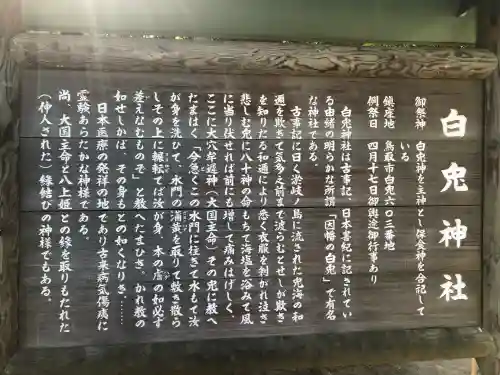 白兎神社
御祭神　白兎神を主神とし保食神を合記して
いる
鎮座地　鳥取市白兎六〇三番地
例祭日　四月十七日御輿渡御行事あり
白兎神社は古事記、日本書紀に記されてい
る由緒の明らかな所謂「因幡の白兎」で有名
な神社である。
古事記に曰く淤岐ノ島に流された兎海の和
邇を欺きて気多之前まで渡らむとせしが欺き
を知りたる和邇により悉く衣服を剥がれ泣き
悲しむ兎に八十神の命もちて海塩を浴みて風
に当り伏せれば前にも増して痛みはげしく、
ここに大穴牟遅神（大国主命）その兎に教へ
たまはく「今急くこの水門に往きて水もて汝
が身を洗ひて、水門の蒲黄を取りて敷き散ら
しその上に輾転てば汝が身、本の膚の如必ず
差えなむもの」と教へたまひき、かれ教の
如せしかば、その身もとの如くなりき……
日本医療の発祥の地であり古来病気傷痍に
霊験あらたかな神様である。
尚、大国主命と八上姫との縁を取りもたれた
（仲人された）縁結びの神様でもある。